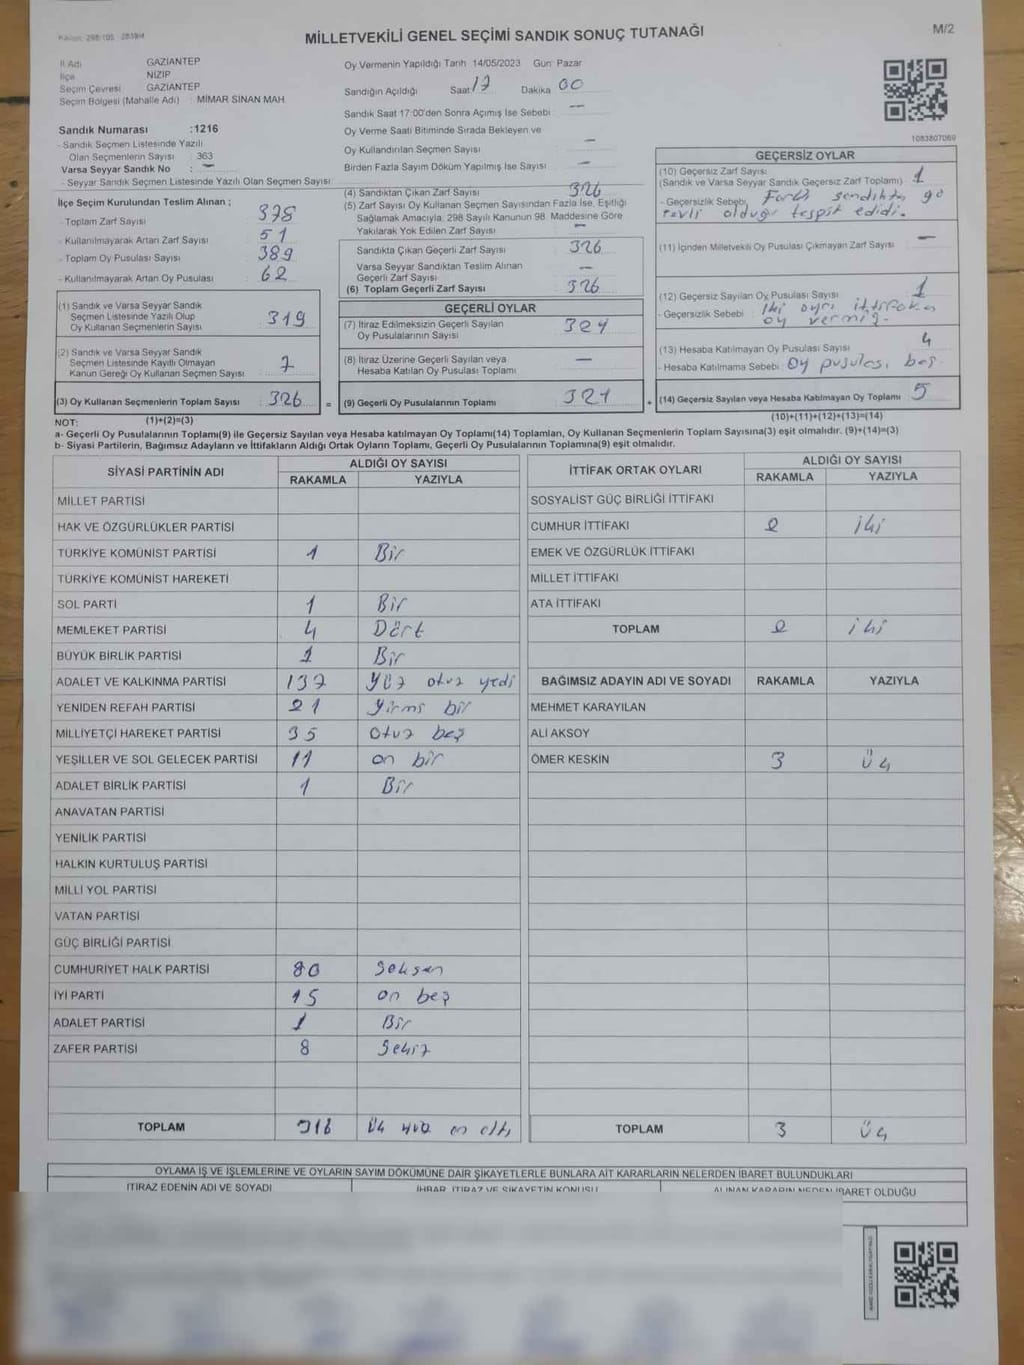 MİLLETVEKİLİ GENEL SEÇİMİ SANDIK SONUÇ TUTANAĞI
M/2
İl Adı GAZİANTEP
İlçe NİZİP
Seçim Çevresi GAZİANTEP
Seçim Bölgesi (Mahalle Adı) : MİMAR SİNAN MAH.
Sandık Numarası :1216
- Sandık Seçmen Listesinde Yazılı
Olan Seçmenlerin Sayısı : 363
Varsa Seyyar Sandık No : —
- Seyyar Sandık Seçmen Listesinde Yazılı Olan Seçmen Sayısı:
İlçe Seçim Kurulundan Teslim Alınan ;
- Toplam Zarf Sayısı 378
- Kullanılmayarak Artan Zarf Sayısı 51
- Toplam Oy Pusulası Sayısı 389
- Kullanılmayarak Artan Oy Pusulası 62
(1) Sandık ve Varsa Seyyar Sandık
Seçmen Listesinde Yazılı Olup
Oy Kullanan Seçmenlerin Sayısı 319
(2) Sandık ve Varsa Seyyar Sandık
Seçmen Listesinde Kayıtlı Olmayan
Kanun Gereği Oy Kullanan Seçmen Sayısı 7
(3) Oy Kullanan Seçmenlerin Toplam Sayısı : 326 =
Oy Vermenin Yapıldığı Tarih 14/05/2023 Gün: Pazar
Sandığın Açıldığı Saat 17 Dakika 00
Sandık Saat 17:00'den Sonra Açılmış İse Sebebi : —
Oy Verme Saati Bitiminde Sırada Bekleyen ve
Oy Kullandırılan Seçmen Sayısı —
Birden Fazla Sayım Döküm Yapılmış İse Sayısı —
(4) Sandıktan Çıkan Zarf Sayısı 326
(5) Zarf Sayısı Oy Kullanan Seçmen Sayısından Fazla İse, Eşitliği
Sağlamak Amacıyla, 298 Sayılı Kanunun 98. Maddesine Göre
Yakılarak Yok Edilen Zarf Sayısı —
Sandıkta Çıkan Geçerli Zarf Sayısı 326
Varsa Seyyar Sandıktan Teslim Alınan
Geçerli Zarf Sayısı —
(6) Toplam Geçerli Zarf Sayısı 326
GEÇERLİ OYLAR
(7) İtiraz Edilmeksizin Geçerli Sayılan
Oy Pusulalarının Sayısı 321
(8) İtiraz Üzerine Geçerli Sayılan veya
Hesaba Katılan Oy Pusulası Toplamı —
(9) Geçerli Oy Pusulalarının Toplamı 321 +
1083807069
GEÇERSİZ OYLAR
(10) Geçersiz Zarf Sayısı
(Sandık ve Varsa Seyyar Sandık Geçersiz Zarf Toplamı) 1
- Geçersizlik Sebebi
olduğu tespit edildi.
(11) İçinden Milletvekili Oy Pusulası Çıkmayan Zarf Sayısı —
(12) Geçersiz Sayılan Oy Pusulası Sayısı 1
- Geçersizlik Sebebi : iki ayrı ittifaka
oy vermiş.
(13) Hesaba Katılmayan Oy Pusulası Sayısı 4
- Hesaba Katılmama Sebebi : Oy pusulası boş
(14) Geçersiz Sayılan veya Hesaba Katılmayan Oy Toplamı 5
NOT: (1)+(2)=(3) (10)+(11)+(12)+(13)=(14)
a- Geçerli Oy Pusulalarının Toplamı(9) ile Geçersiz Sayılan veya Hesaba katılmayan Oy Toplamı(14) Toplamları, Oy Kullanan Seçmenlerin Toplam Sayısına(3) eşit olmalıdır. (9)+(14)=(3)
b- Siyasi Partilerin, Bağımsız Adayların ve İttifakların Aldığı Ortak Oyların Toplamı, Geçerli Oy Pusulalarının Toplamına(9) eşit olmalıdır.
SİYASİ PARTİNİN ADI ALDIĞI OY SAYISI
RAKAMLA YAZIYLA
MİLLET PARTİSİ
HAK VE ÖZGÜRLÜKLER PARTİSİ
TÜRKİYE KOMÜNİST PARTİSİ 1 Bir
TÜRKİYE KOMÜNİST HAREKETİ
SOL PARTİ 1 Bir
MEMLEKET PARTİSİ 4 Dört
BÜYÜK BİRLİK PARTİSİ 1 Bir
ADALET VE KALKINMA PARTİSİ 137 yüz otuz yedi
YENİDEN REFAH PARTİSİ 21 yirmi bir
MİLLİYETÇİ HAREKET PARTİSİ 35 otuz beş
YEŞİLLER VE SOL GELECEK PARTİSİ 11 on bir
ADALET BİRLİK PARTİSİ 1 Bir
ANAVATAN PARTİSİ
YENİLİK PARTİSİ
HALKIN KURTULUŞ PARTİSİ
MİLLİ YOL PARTİSİ
VATAN PARTİSİ
GÜÇ BİRLİĞİ PARTİSİ
CUMHURİYET HALK PARTİSİ 80 Seksen
İYİ PARTİ 15 on beş
ADALET PARTİSİ 1 Bir
ZAFER PARTİSİ 8 Sekiz
TOPLAM 316 Üç yüz on altı
İTTİFAK ORTAK OYLARI ALDIĞI OY SAYISI
RAKAMLA YAZIYLA
SOSYALİST GÜÇ BİRLİĞİ İTTİFAKI
CUMHUR İTTİFAKI 2 iki
EMEK VE ÖZGÜRLÜK İTTİFAKI
MİLLET İTTİFAKI
ATA İTTİFAKI
TOPLAM 2 iki
BAĞIMSIZ ADAYIN ADI VE SOYADI RAKAMLA YAZIYLA
MEHMET KARAYILAN
ALİ AKSOY
ÖMER KESKİN 3 Üç
TOPLAM 3 Üç
OYLAMA İŞ VE İŞLEMLERİNE VE OYLARIN SAYIM DÖKÜMÜNE DAİR ŞİKAYETLERLE BUNLARA AİT KARARLARIN NELERDEN İBARET BULUNDUKLARI
İTİRAZ EDENİN ADI VE SOYADI İHBAR, İTİRAZ VE ŞİKAYETİN KONUSU ALINAN KARARIN NEDEN İBARET OLDUĞU